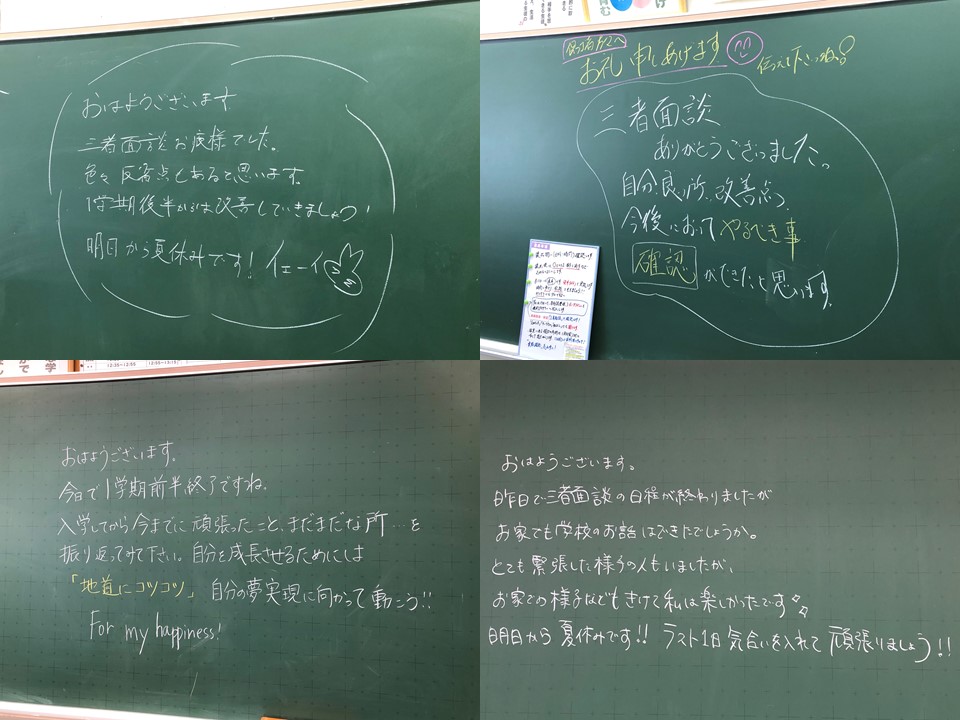 おはようございます
三者面談お疲様でした。
色々反省点もあると思います。
1学期後半からは改善していきましょう!
明日から夏休みです! イェーイ
保護者の方々へ
お礼申しあげます
伝えて下さいね。
三者面談
ありがとうございました。
自分の良い所、改善点、
今後においてやるべき事
確認ができたと思います。
おはようございます。
今日で1学期前半終了ですね。
入学してから今までに頑張ったこと、まだまだな所…を
振り返ってみて下さい。自分を成長させるためには
「地道にコツコツ」 自分の夢実現に向かって動こう!!
For my happiness!
おはようございます。
昨日で三者面談の日程が終わりましたが
お家でも学校のお話はできたでしょうか。
とても緊張した様子の人もいましたが、
お家での様子などもきけて私は楽しかったです
明日から夏休みです!! ラスト1日気合いを入れて頑張りましょう!!